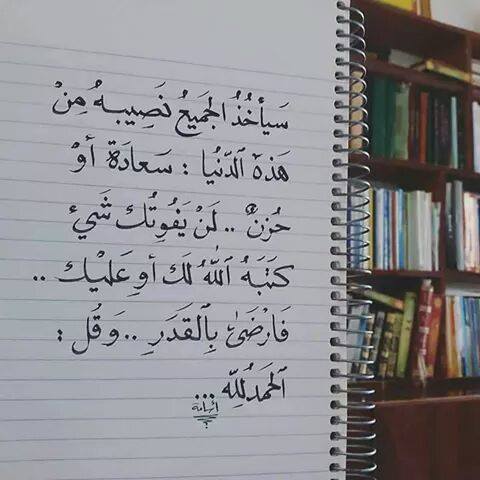 سَيأخُذُ الجَميعُ نَصِيبهُ مِنْ
هَذهِ ٱلدّنْيا : سَعادَة أوْ
حُزنٌ .. لَنْ يَفُوتُك شَيْء
كَتَبَهُ ٱللّٰهُ لَكَ أو عَليْك ..
فَارْضَىٰ بِٱلقَدَرِ .. وَقُل :
ٱلحَمدُ لِلّه ...
أسامة